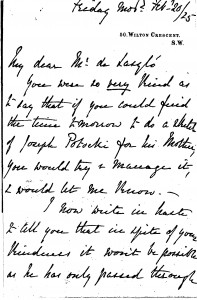 Friday morg. Feb. 20/25
50, WILTON CRESCENT.
S.W.
My dear Mr. de Laszló
You were so very kind as
to say that if you could find
the time tomorrow to do a sketch
of Joseph Potocki for his Mother
you would try & manage it,
& would let me know. —
I now write in haste
to tell you that in spite of your
kindness it won't be possible
as he has only passed through